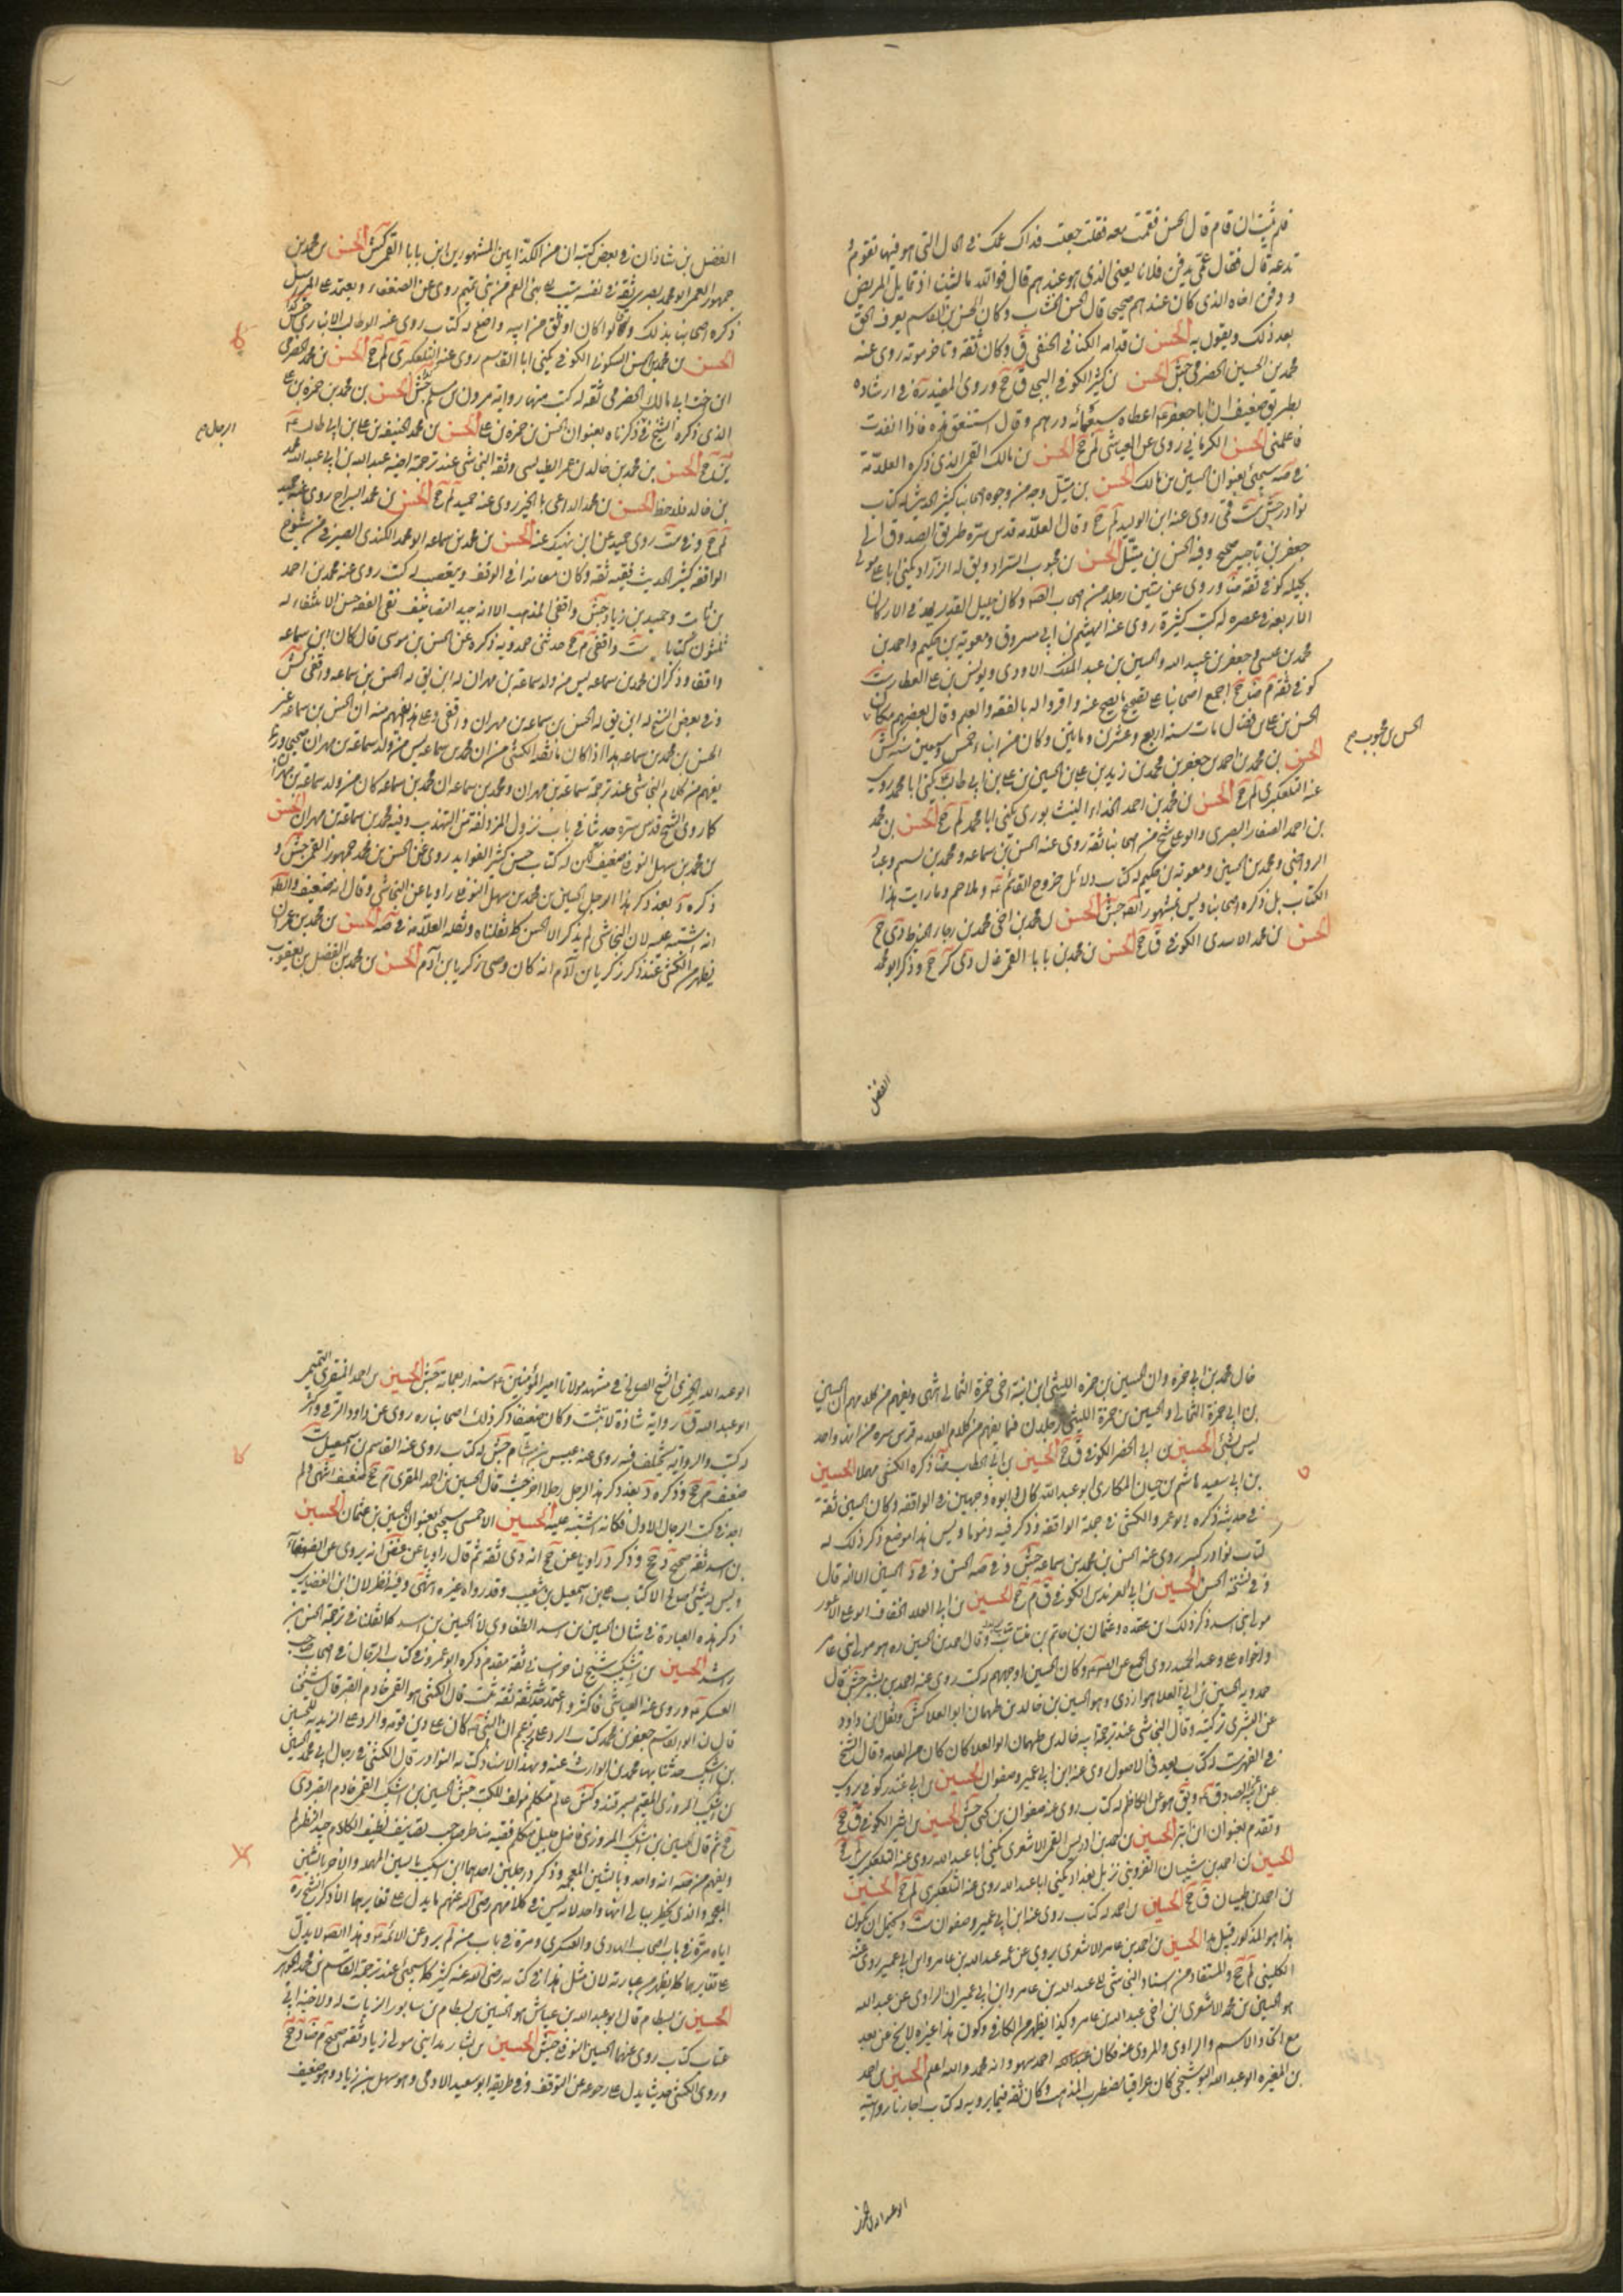 فلم يثبت ان قام قال الحسن فقمت معه فقلت جعلت فداك عمك في الحال التي هو فيها تقوم و
تدعه قال فقال عمي يدفن فلانا يعني الذي هو عندهم قال فوالله ما لبثنا ان تماثل المريض
و دفن اخاه الذي كان عندهم صحيحا قال الحسن الخشاب وكان الحسن بن القاسم يعرف الحق
بعد ذلك ويقول به الحسن بن قدامه الكناني الحنفي ق وكان ثقة وتاخر موته روى عنه
محمد بن الحسين الحضرمي جش الحسن بن كثير الكوفي البجلي ق جخ وروى المفيد ره في ارشاده
بطريق ضعيف ان ابا جعفر ع اعطاه سبعمائه درهم وقال استنفق هذه فاذا انفدت
فاعلمني الحسن الكرماني روى عن العياشي لم جخ الحسن بن مالك القمي الذي ذكره العلامة
في صه سيجئ بعنوان الحسين بن مالك الحسن بن متيل وجه من وجوه اصحابنا كثير الحديث له كتاب
نوادر جش ست قمي روى عنه ابن الوليد لم جخ وقال العلامه قدس سره طريق الصدوق الى
جعفر بن ناجيه صحيح وفيه الحسن بن متيل الحسن بن محبوب السراد ويق له الزراد يكنى ابا علي مولى
بجيله كوفي ثقه ضا وروى عن ستين رجلا من اصحاب الصادق وكان جليل القدر يعد في الاركان
الاربعه في عصره له كتب كثيرة روى عنه الهيثم بن ابي مسروق ومعوية بن حكيم واحمد بن
محمد بن عيسى وجعفر بن عبيد الله والحسين بن عبد الملك الاودي ويونس بن علي العطار ست
كوفي ثقه م ضا جخ اجمع اصحابنا على تصحيح ما يصح عنه واقروا له بالفقه والعلم وقال بعضهم مكان
الحسن بن علي بن فضال مات سنه اربع وعشرين ومايتين وكان من ابناء خمس وسبعين سنه كش
الحسن بن محمد بن احمد بن جعفر بن محمد بن زيد بن علي بن الحسين بن علي بن ابي طالب يكنى ابا محمد روى
عنه التلعكبري لم جخ الحسن بن محمد بن احمد الحذاء النيشابوري يكنى ابا محمد لم جخ الحسن بن محمد
بن احمد الصفار البصري ابو علي شيخ من اصحابنا ثقه روى عن الحسن بن سماعه ومحمد بن تسنيم وعباد
الرواجني ومحمد بن الحسين ومعوية بن حكيم له كتاب دلائل خروج القائم ع وملاحم وما رايت هذا
الكتاب بل ذكره اصحابنا وليس بمشهور ايضا جش الحسن بن محمد بن اخي محمد بن رجاء الخياط دي جخ
الحسن بن محمد الاسدي الكوفي ق جخ الحسن بن محمد بن بابا القمي غال دي كر جخ وذكر ابو محمد
الحسن بن محبوب صح
الفضل
الفضل بن شاذان في بعض كتبه ان من الكذابين المشهورين ابن بابا القمي كش الحسن بن محمد بن
جمهور العمي ابو محمد بصري ثقة في نفسه ينسب الى بني العم من بني تميم روى عن الضعفاء ويعتمد على المراسيل
ذكره اصحابنا بذلك وقالوا كان اوثق من ابيه واصلح له كتاب روى عنه ابو طالب الانباري جش
الحسن بن محمد بن الحسن السكوني الكوفي يكنى ابا القاسم روى عنه التلعكبري لم جخ الحسن بن محمد الحضرمي
ابن اخت ابي مالك الحضرمي ثقه له كتب منها رواية هرون بن مسلم جش الحسن بن محمد بن حمزه بن علي
الذي ذكره الشيخ ذكرناه بعنوان الحسن بن حمزه بن علي الحسن بن محمد الحنيفه بن علي بن ابي طالب ع
ين جخ الحسن بن محمد بن خالد بن عمر الطيالسي وثقه النجاشي عند ترجمة اخيه عبد الله بن ابي عبد الله محمد
بن خالد فلاحظ الحسن بن محمد الداعي بالخير روى عنه حميد لم جخ الحسن بن محمد السراج روى عنه حميد
لم جخ وفي ست روى حميد عن ابن نهيك عنه الحسن بن محمد بن سماعه ابو محمد الكندي الصيرفي من شيوخ
الواقفه كثير الحديث فقيه ثقه وكان يعاند في الوقف ويتعصب له كتب روى عنه محمد بن احمد
بن ثابت وحميد بن زياد جش واقفي المذهب الا انه جيد التصانيف نقي الفقه حسن الانتقاء له
ثلثون كتابا ست واقفي م جخ حدثني حمدويه ذكره عن الحسن بن موسى قال كان ابن سماعه
واقفا وذكر ان محمد بن سماعه ليس من ولد سماعة بن مهران له ابن يق له الحسن بن سماعه واقفي كش
وفي بعض النسخ له ابن يق له الحسن بن سماعه بن مهران واقفي وعلى هذا يفهم منه ان الحسن بن سماعه غير
الحسن بن محمد بن سماعه هذا اذا كان ما نقله الكشي من ان محمد بن سماعه ليس من ولد سماعه بن مهران صحيحا وربما
يفهم من كلام النجاشي عند ترجمة سماعة بن مهران ومحمد بن سماعه ان محمد بن سماعه كان من ولد سماعة بن مهران
كما روى الشيخ قدس سره حديثا في باب نزول المزدلفة من التهذيب وفيه محمد بن سماعة بن مهران الحسن
بن محمد بن سهل النوفلي ضعيف لكن له كتاب حسن كثير الفوايد روى عن الحسن بن محمد جمهور القمي جش و
ذكره د بعد ذكر هذا الرجل الحسين بن محمد بن سهل النوفلي راويا عن النجاشي وقال انه ضعيف والظاهر
انه اشتبه عليه لان النجاشي لم يذكر الا الحسن كما نقلناه ونقله العلامه في صه الحسن بن محمد بن عمران
يظهر من الكشي عند ذكر زكريا بن آدم انه كان وصي زكريا بن آدم الحسن بن محمد بن الفضل بن يعقوب
قال محمد بن ابي حمزه وان الحسين بن حمزه الليثي ابن ابنة ابي حمزة الثمالي انتهى ويفهم من كلامهم ان الحسين
بن ابي حمزة الثمالي والحسين بن حمزة الليثي رجلان فما يفهم من كلام العلامه قدس سره من انه واحد
ليس بشئ الحسين بن ابي الخضر الكوفي ق جخ الحسين بن ابي الخطاب ضا ذكره الكشي مهملا الحسين
بن ابي سعيد هاشم بن حيان المكاري ابو عبد الله كان هو وابوه وجهين في الواقفه وكان الحسين ثقة
في حديثه ذكره ابو عمرو الكشي في جملة الواقفه وذكر فيه ذموما وليس هذا موضع ذكر ذلك له
كتاب نوادر كبير روى عنه الحسن بن محمد بن سماعه جش وفي صه الحسن وفي د الحسين الا انه قال
وفي نسخة الحسن الحسين بن ابي العرندس الكوفي ق م جخ الحسين بن ابي العلاء الخفاف ابو علي الاعور
مولى بني اسد ذكر ذلك ابن عقده وعثمان بن حاتم بن منتاب وقال احمد بن الحسين ره هو مولى بني عامر
واخواه علي وعبد الحميد روى الجميع عن الصادق وكان الحسين اوجههم له كتب روى عنه احمد بن بشير جش قال
حمدويه الحسين بن ابي العلا هو ازدي وهو الحسين بن خالد بن طهمان ابو العلا كش ونقل ابن داود
عن البشرى تزكيته وقال النجاشي عند ترجمة ابيه خالد بن طهمان ابو العلا كان من العامه وقال الشيخ
في الفهرست له كتاب يعد في الاصول روى عنه ابن ابي عمير وصفوان الحسين بن ابي غندر كوفي يروي
عن ابيه عن الصادق ويق هو عن الكاظم له كتاب روى عنه صفوان بن يحيى جش الحسين بن اثير الكوفي ق جخ
وتقدم بعنوان ابن ابتر الحسين بن احمد بن ادريس القمي الاشعري يكنى ابا عبد الله روى عنه التلعكبري لم جخ
الحسين بن احمد بن شيبان القزويني نزيل بغداد يكنى ابا عبد الله روى عنه التلعكبري لم جخ الحسين
بن احمد بن ظبيان ق جخ الحسين بن احمد له كتاب روى عنه ابن ابي عمير وصفوان ست ويحتمل ان يكون
هذا هو المذكور قبيل هذا الحسين بن احمد بن عامر الاشعري يروي عن عمه عبد الله بن عامر وابن ابي عمير روى عنه
الكليني لم جخ والمستفاد من اسناد النجاشي الى عبد الله بن عامر وابن ابي عمير ان الراوي عن عبد الله
هو الحسين بن محمد الاشعري ابن اخي عبد الله بن عامر وكذا يظهر من الكافي وكون هذا غيره لا يخ عن بعد
مع اتحاد الاسم والراوي والمروي عنه فكان احمد سهو وانه محمد والله اعلم الحسين بن احمد
بن المغيره ابو عبد الله البوشنجي كان عراقيا مضطرب المذهب وكان ثقة فيما يرويه له كتاب اجازنا روايته
ابو عبد الله الخمري الشيخ الصالح في مشهد مولانا امير المؤمنين ع سنه اربعمائه جش الحسين بن احمد المنقري التميمي
ابو عبد الله ق ر رواية شاذة لا تثبت وكان ضعيفا ذكر ذلك اصحابنا ره روى عن داود الرقي واكثر
له كتب والرواية تختلف فيه روى عنه عبيس بن هشام جش له كتاب روى عنه القاسم بن اسمعيل ست
ضعيف م جخ وذكره د بعد ذكر هذا الرجل رجلا اخر حيث قال الحسين بن احمد المقري م جخ ضعيف انتهى ولم
اجد في كتب الرجال الا الاول فكانه اشتبه عليه الحسين الاحمسي سيجئ بعنوان الحسين بن عثمان الحسين
بن اسد ثقه صحيح د جخ وذكر د راويا عن جخ انه دي ثقه ثم قال راويا عن غض انه يروي عن الضعفاء
وليس بشئ اصلح الا كتاب علي بن اسمعيل بن شعيب وقد رواه غيره انتهى وفيه نظر لان ابن الغضايري
ذكر هذه العبارة في شان الحسن بن اسد الطفاوي لا الحسين بن اسد كما نقلنا في ترجمة الحسن بن
راشد الحسين بن اشكيب شيخ لنا خراساني ثقة مقدم ذكره ابو عمرو في كتاب الرجال في اصحاب صاحب
العسكر ع وروى عنه العياشي فاكثر واعتمد حديثه ثقة ثقة ثبت قال الكشي هو القمي خادم القبر قال شيخنا
قال لنا ابو القاسم جعفر بن محمد كتاب الرد على من زعم ان النبي ع كان على دين قومه والرد على الزيديه للحسين
بن اشكيب حدثنا بها محمد بن الوارث عنه وبهذا الاسناد كتابه النوادر قال الكشي في رجال ابي محمد الحسين
بن اشكيب المروزي المقيم بسمرقند وكش عالم متكلم مؤلف للكتب جش الحسين بن اشكيب القمي خادم القبر دي
جخ ثم قال الحسين بن اشكيب المروزي فاضل جليل متكلم فقيه مناظر صاحب تصانيف لطيف الكلام جيد النظر لم
ويفهم من صه انه واحد وبالشين المعجمه وذكر د رجلين احدهما ابن اسكيب بالسين المهمله والاخر بالشين
المعجمه والذي يخطر ببالي انهما واحد لانه ليس في كلامهم رضي الله عنهم ما يدل على تغايرهما الا ذكر الشيخ ره
اياه مرة في باب اصحاب الهادي والعسكري ومرة في باب من لم يرو عن الائمه ع وهذا ايضا لا يدل
على تغايرهما كما يظهر من عبارته لان مثل هذا في كتابه رضي الله عنه كثير كما سيجئ عند ترجمة القاسم بن محمد الجوهري
الحسين بن بسطام قال ابو عبد الله بن عياش هو الحسين بن بسطام بن سابور الزيات له ولاخيه ابي
عتاب كتاب روى عنهما الحسين النوفلي جش الحسين بن بشار مدايني مولى زياد ثقة صحيح م ضا د جخ
وروى الكشي حديثا يدل على رجوعه عن التوقف وفي طريقه ابو سعيد الادمي وهو سهل بن زياد وهو ضعيف